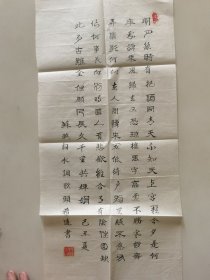 明月幾時有把酒問青天不知天上宮闕今夕是何
年我欲乘風歸去又恐瓊樓玉宇高處不勝寒起舞
弄清影何似在人間轉朱閣低綺戶照無眠不應
有恨何事長向別時圓人有悲歡離合月有陰晴圓缺
此事古難全但願人長久千里共嬋娟 夏
蘇軾水調歌頭 書